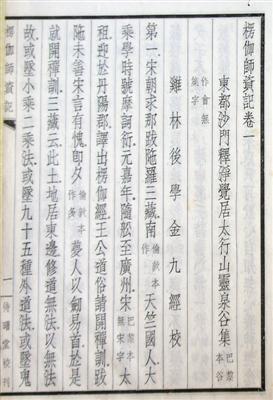 楞伽師資記卷一
東都沙門釋淨覺居太行山靈泉谷集 巴黎本谷
作會無集字
雞林後學金九經校
第一宋朝求那跋陀羅三藏南 倫敦本作 天竺國人大
乘學時號摩訶衍元嘉年隨舩至廣州宋 巴黎本無宋字 太
祖迎於丹陽郡譯出楞伽經王公道俗請開禪訓跋
陀未善宋言有愧即夕 倫敦本作多 夢人以劍易首於是
就開禪訓三藏云此土地居東邊修道無法以無法
故或墜小乘二乘法或墜九十五種外道法或墜鬼
楞伽師資記
一
待曙堂校刊